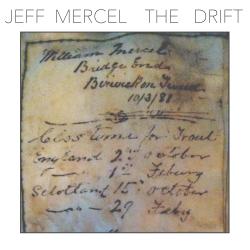 JEFF MERCEL THE DRIFT
William Mercel
Bridge End
Berwick on Tweed
10/3/88
Close time for Trout
England 2nd October
— 1st Febury
Scotland 15th October
— 29 Feby